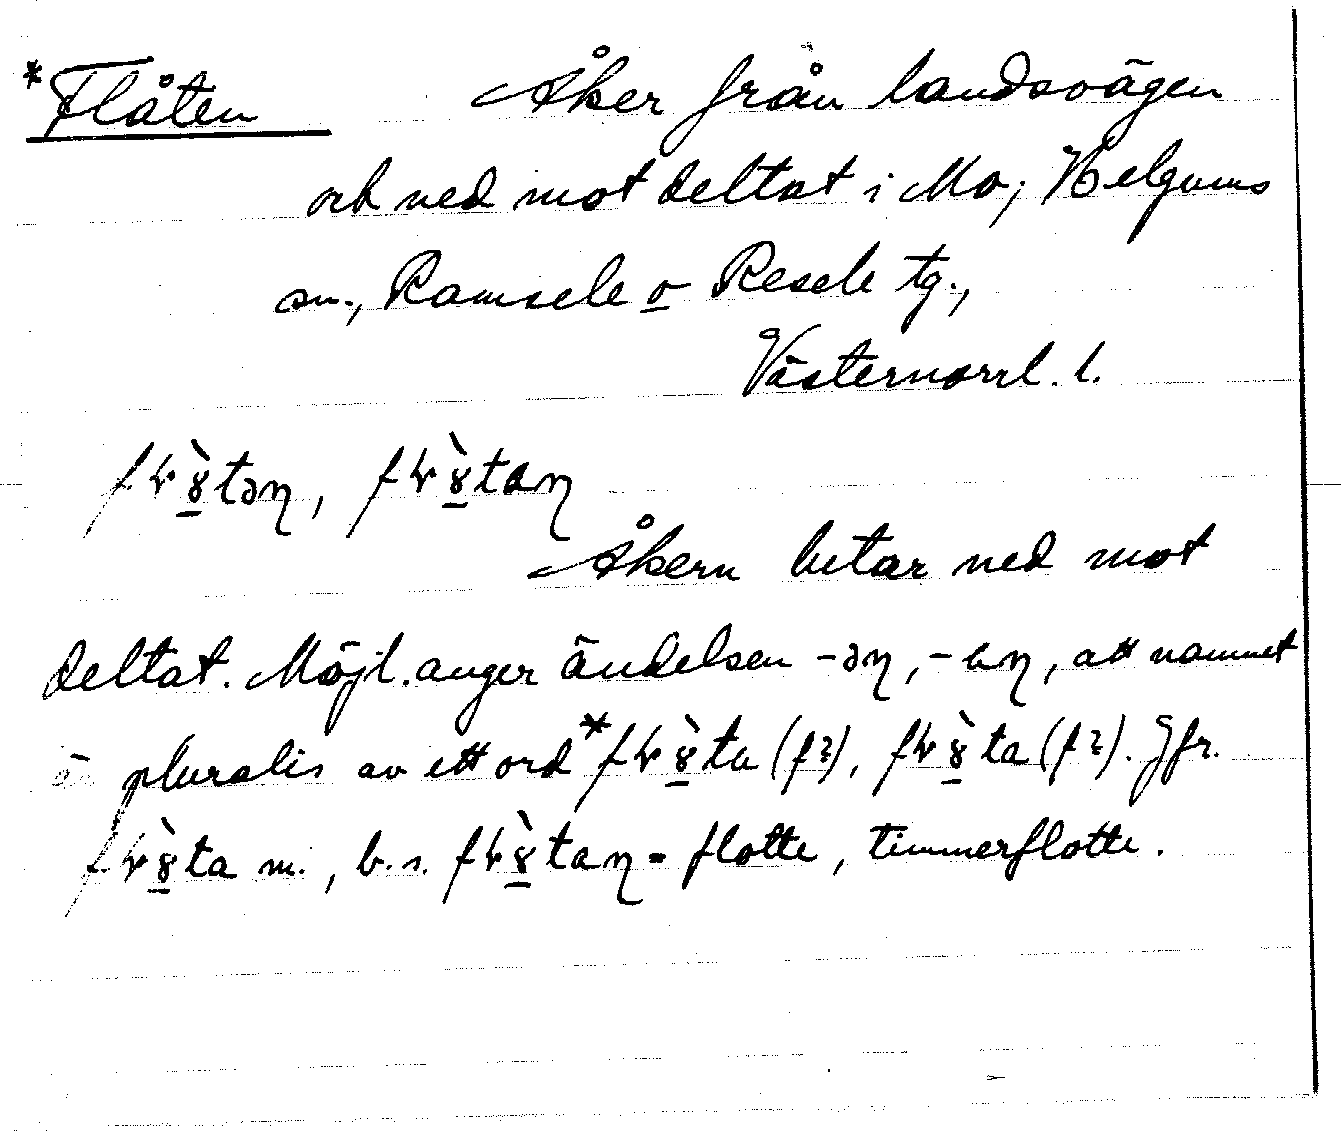 *Flåten Åker från landsvägen
och ned mot deltat i Mo, Helgums
sn., Ramsele o Resele tg.,
Västernorrl. l.
fɬɤ̠̀təɳ, fɬɤ̠̀taɳ
Åkern lutar ned mot
deltat. Möjl. anger ändelsen -əɳ, -aɳ, att namnet
är pluralis av ett ord *fɬɤ̠̀ta (f?), fɬɤ̠̀ta (f?). Jfr.
fɬɤ̠̀ta m., b.s. fɬɤ̠̀taɳ = flotte, timmerflotte.